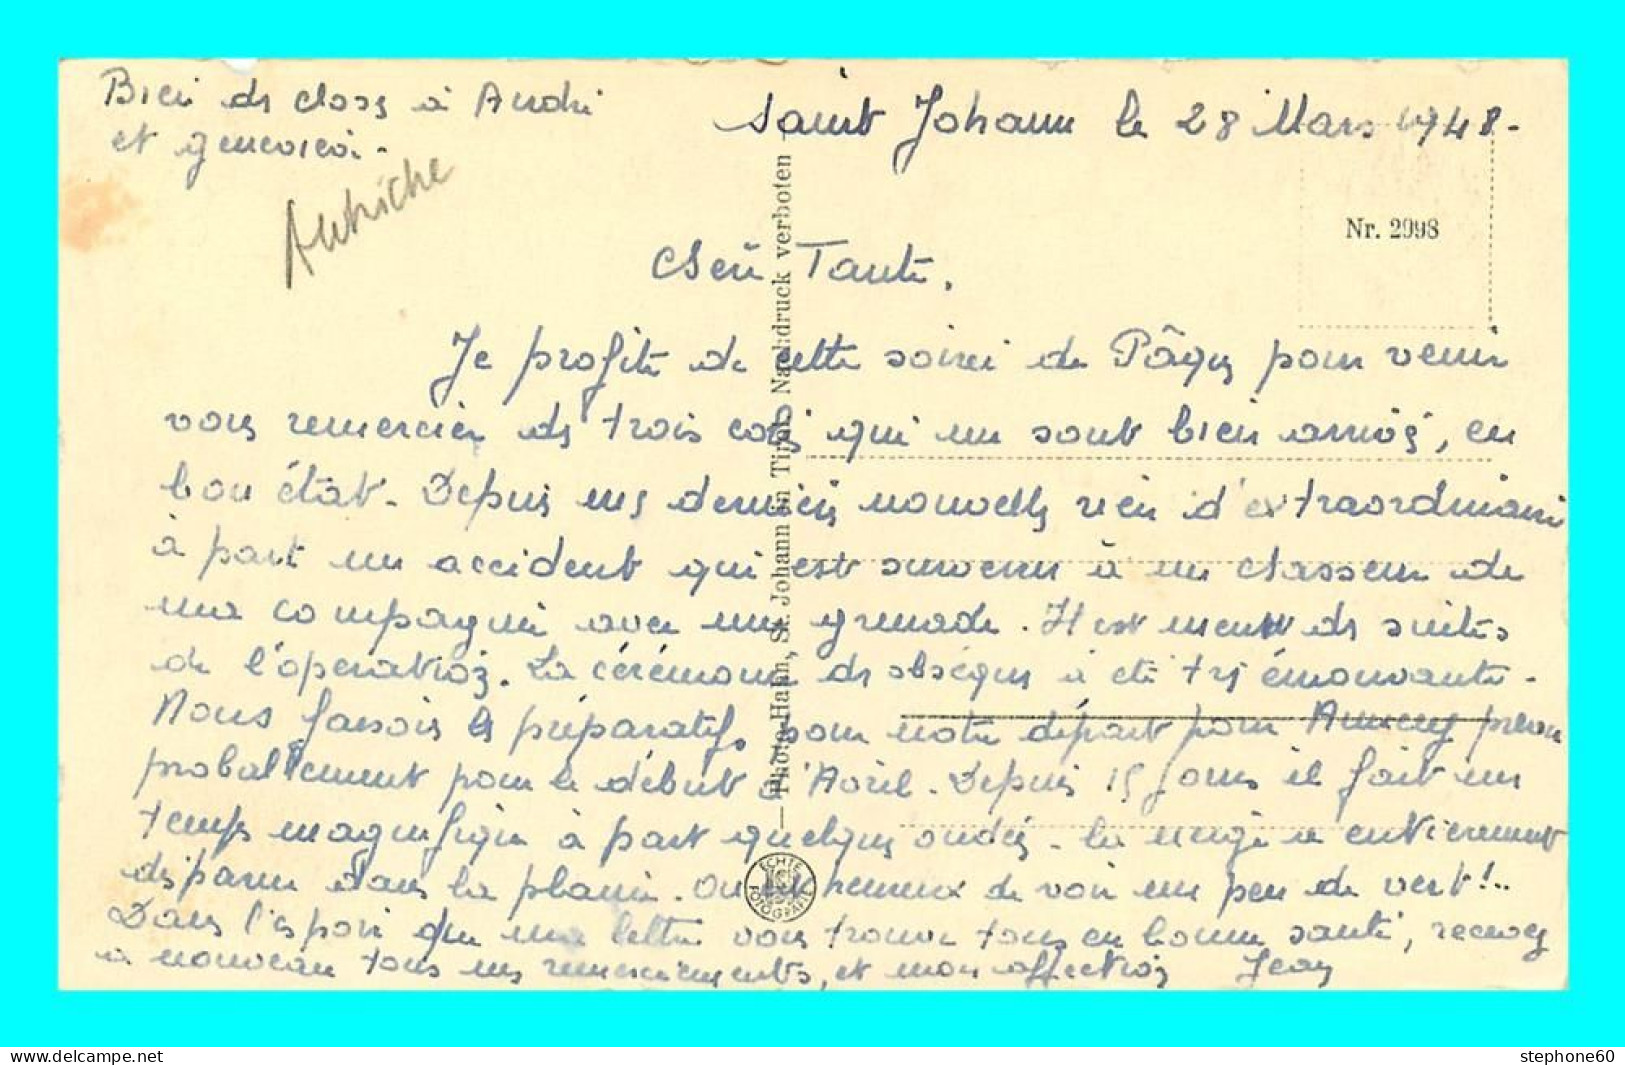 Bien des choses à André
et Geneviève.
Autriche
Saint Johann le 28 Mars 1948.
Nr. 2998
Chère Tante,
Je profite de cette soirée de Pâques pour venir
vous remercier des trois colis qui me sont bien arrivés, en
bon état. Depuis mes dernières nouvelles rien d'extraordinaire
à part un accident qui est survenu à un chasseur de
ma compagnie avec une grenade. Il est mort des suites
de l'opération. La cérémonie des obsèques a été très émouvante.
Nous faisons les préparatifs pour notre départ pour Annecy prévu
probablement pour le début d'Avril. Depuis 15 jours il fait un
temps magnifique à part quelques ondées. La neige a entièrement
disparue dans la plaine. On est heureux de voir un peu de vert!..
Dans l'espoir que ma lettre vous trouve tous en bonne santé, recevez
à nouveau tous mes remerciements, et mon affection Jean
— Photo Hahn, St. Johann in Tirol. Nachdruck verboten —
ECHTE
FOTOGRAFIE
www.delcampe.net
stephone60